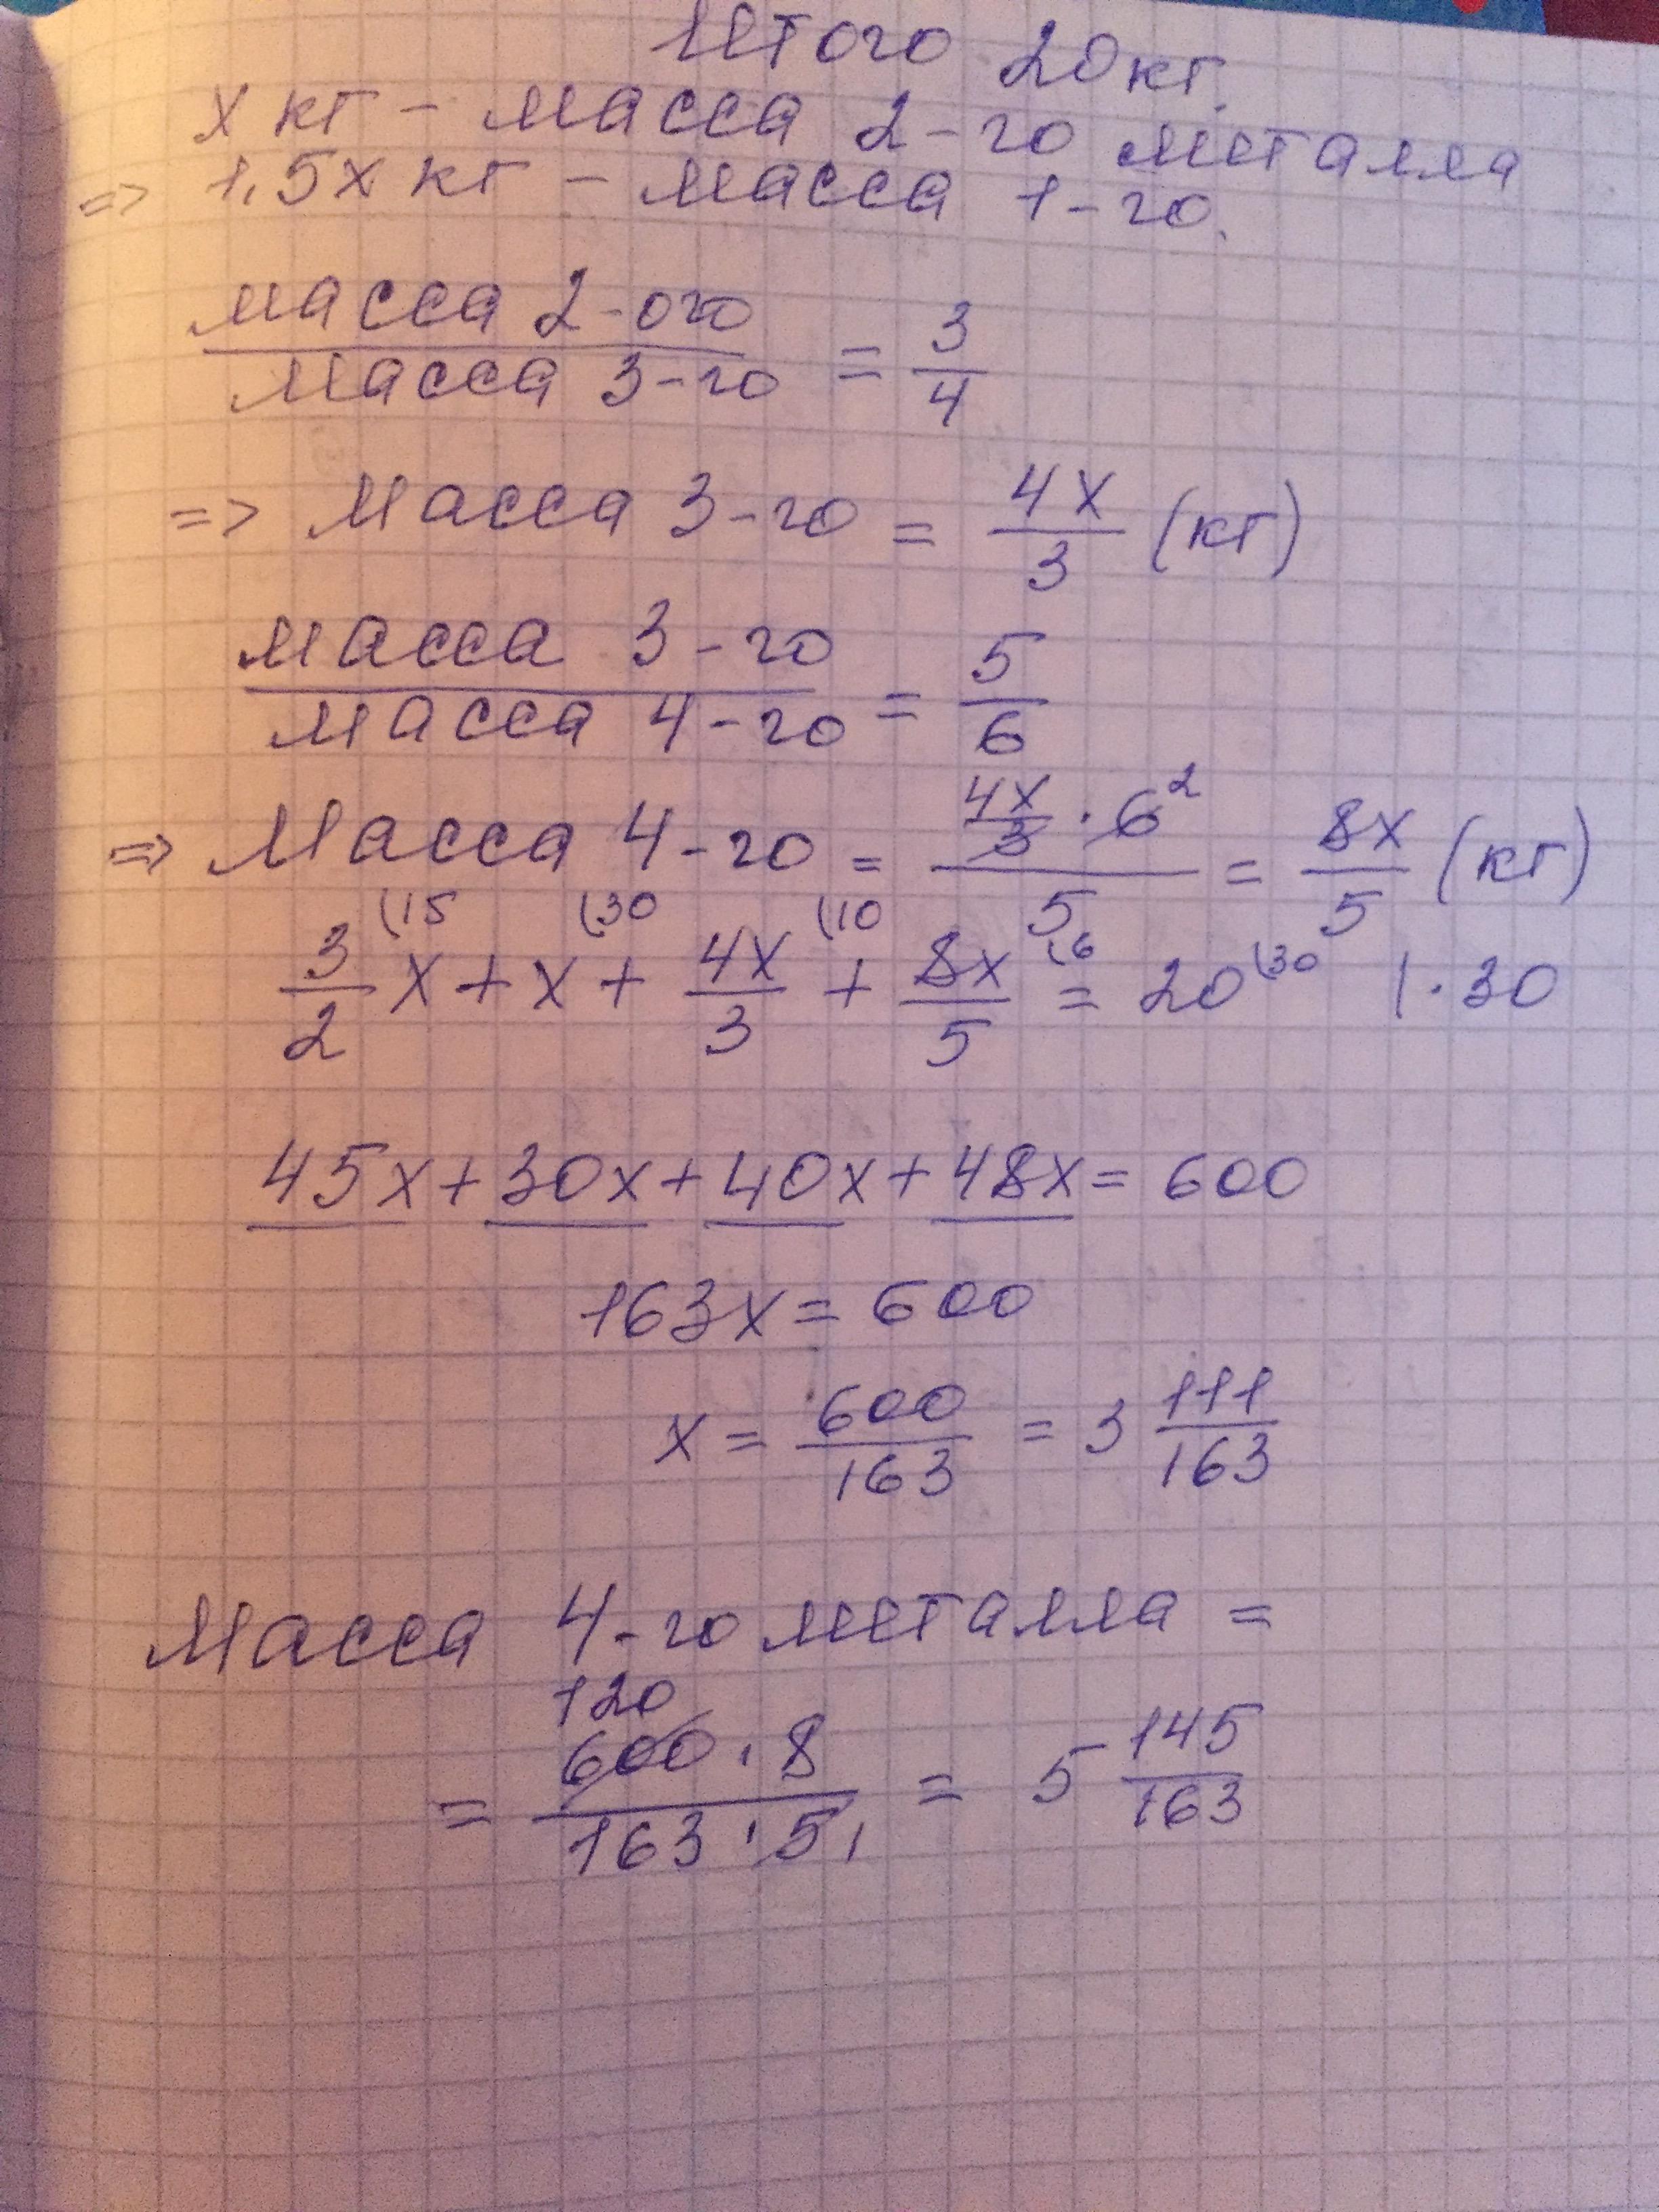 Итого 20 кг.
x кг - масса 2-го металла
=> 1,5x кг - масса 1-го.
масса 2-ого / масса 3-го = 3/4
=> Масса 3-го = 4x/3 (кг)
масса 3-го / масса 4-го = 5/6
=> Масса 4-го = (4x/3 · 6²)/5 = 8x/5 (кг)
(15 (30 (10 (6 (30
3/2 x + x + 4x/3 + 8x/5 = 20 | · 30
45x + 30x + 40x + 48x = 600
163x = 600
x = 600/163 = 3 111/163
Масса 4-го металла =
120
= 600 · 8 / 163 · 5 1 = 5 145/163